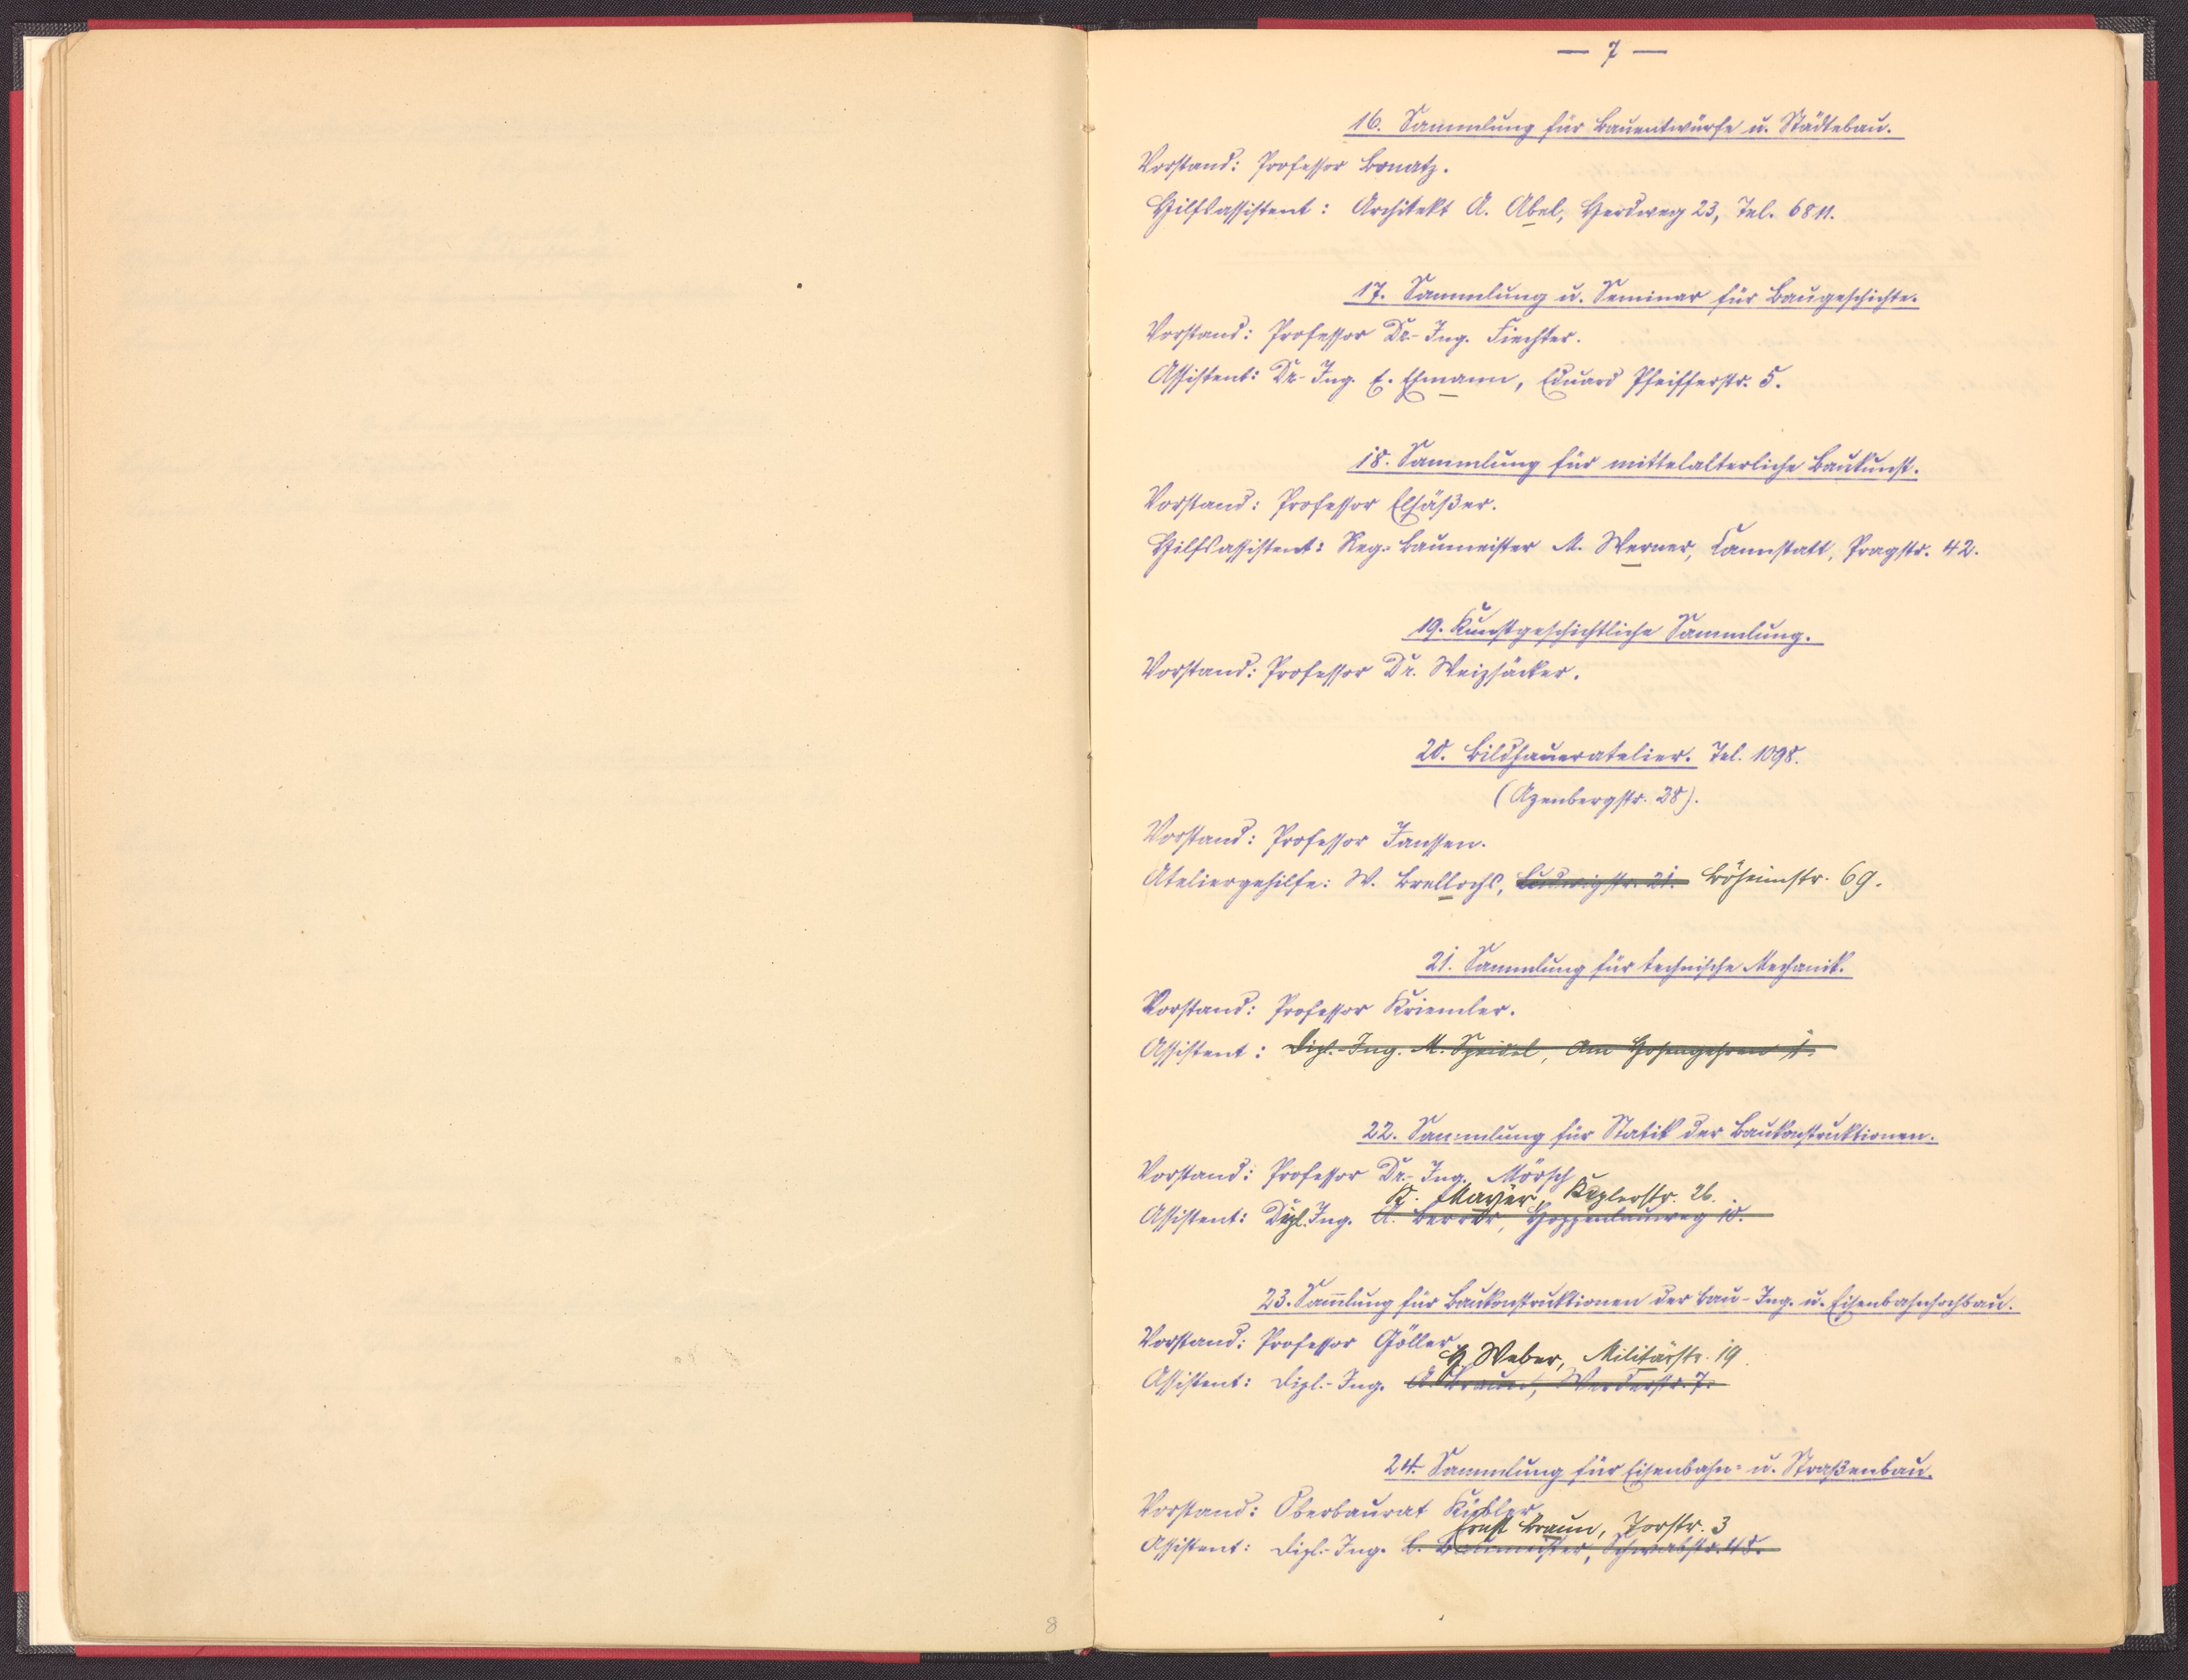 — 7 —
16. Sammlung für Bauentwürfe u. Städtebau.
Vorstand: Professor Bonatz.
Hilfsassistent: Architekt A. Abel, Herdweg 23, Tel. 6811.
17. Sammlung u. Seminar für Baugeschichte.
Vorstand: Professor Dr.-Ing. Fiechter.
Assistent: Dr.-Ing. E. Ehmann, Eduard Pfeifferstr. 5.
18. Sammlung für mittelalterliche Baukunst.
Vorstand: Professor Elsäßer.
Hilfsassistent: Reg.-Baumeister M. Werner, Cannstatt, Pragstr. 42.
19. Kunstgeschichtliche Sammlung.
Vorstand: Professor Dr. Weizsäcker.
20. Bildhaueratelier. Tel. 1098.
(Azenbergstr. 28).
Vorstand: Professor Janssen.
Ateliergehilfe: W. Brellochs, Ludwigstr. 21. Böheimstr. 69.
21. Sammlung für technische Mechanik.
Vorstand: Professor Kriemler.
Assistent: Dipl.-Ing. M. Speidel, Am Hohengehren 1.
22. Sammlung für Statik der Baukonstruktionen.
Vorstand: Professor Dr.-Ing. Mörsch
K. Mayer, Keplerstr. 26.
Assistent: Dipl. Ing. A. Berrer, Hoppenlauweg 10.
23. Sammlung für Baukonstruktionen der Bau-Ing. u. Eisenbahnhochbau.
Vorstand: Professor Göller
Weber, Militärstr. 19.
Assistent: Dipl.-Ing. A. Braun, Werderstr. 7.
24. Sammlung für Eisenbahn- u. Straßenbau.
Vorstand: Oberbaurat Kübler
Ernst Braun, Torstr. 3
Assistent: Dipl.-Ing. B. Baumeister, Schwabstr. 48.
8